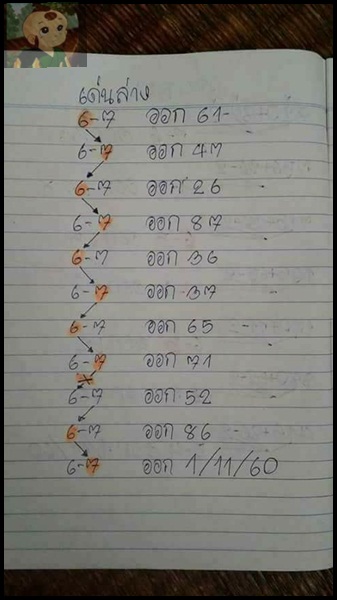 เด่นล่าง
6-7 ออก 61-
6-7 ออก 47
6-7 ออก 26
6-7 ออก 87
6-7 ออก 36
6-7 ออก 37
6-7 ออก 65
6-7 ออก 71
6-7 ออก 52
6-7 ออก 86
6-7 ออก 1/11/60